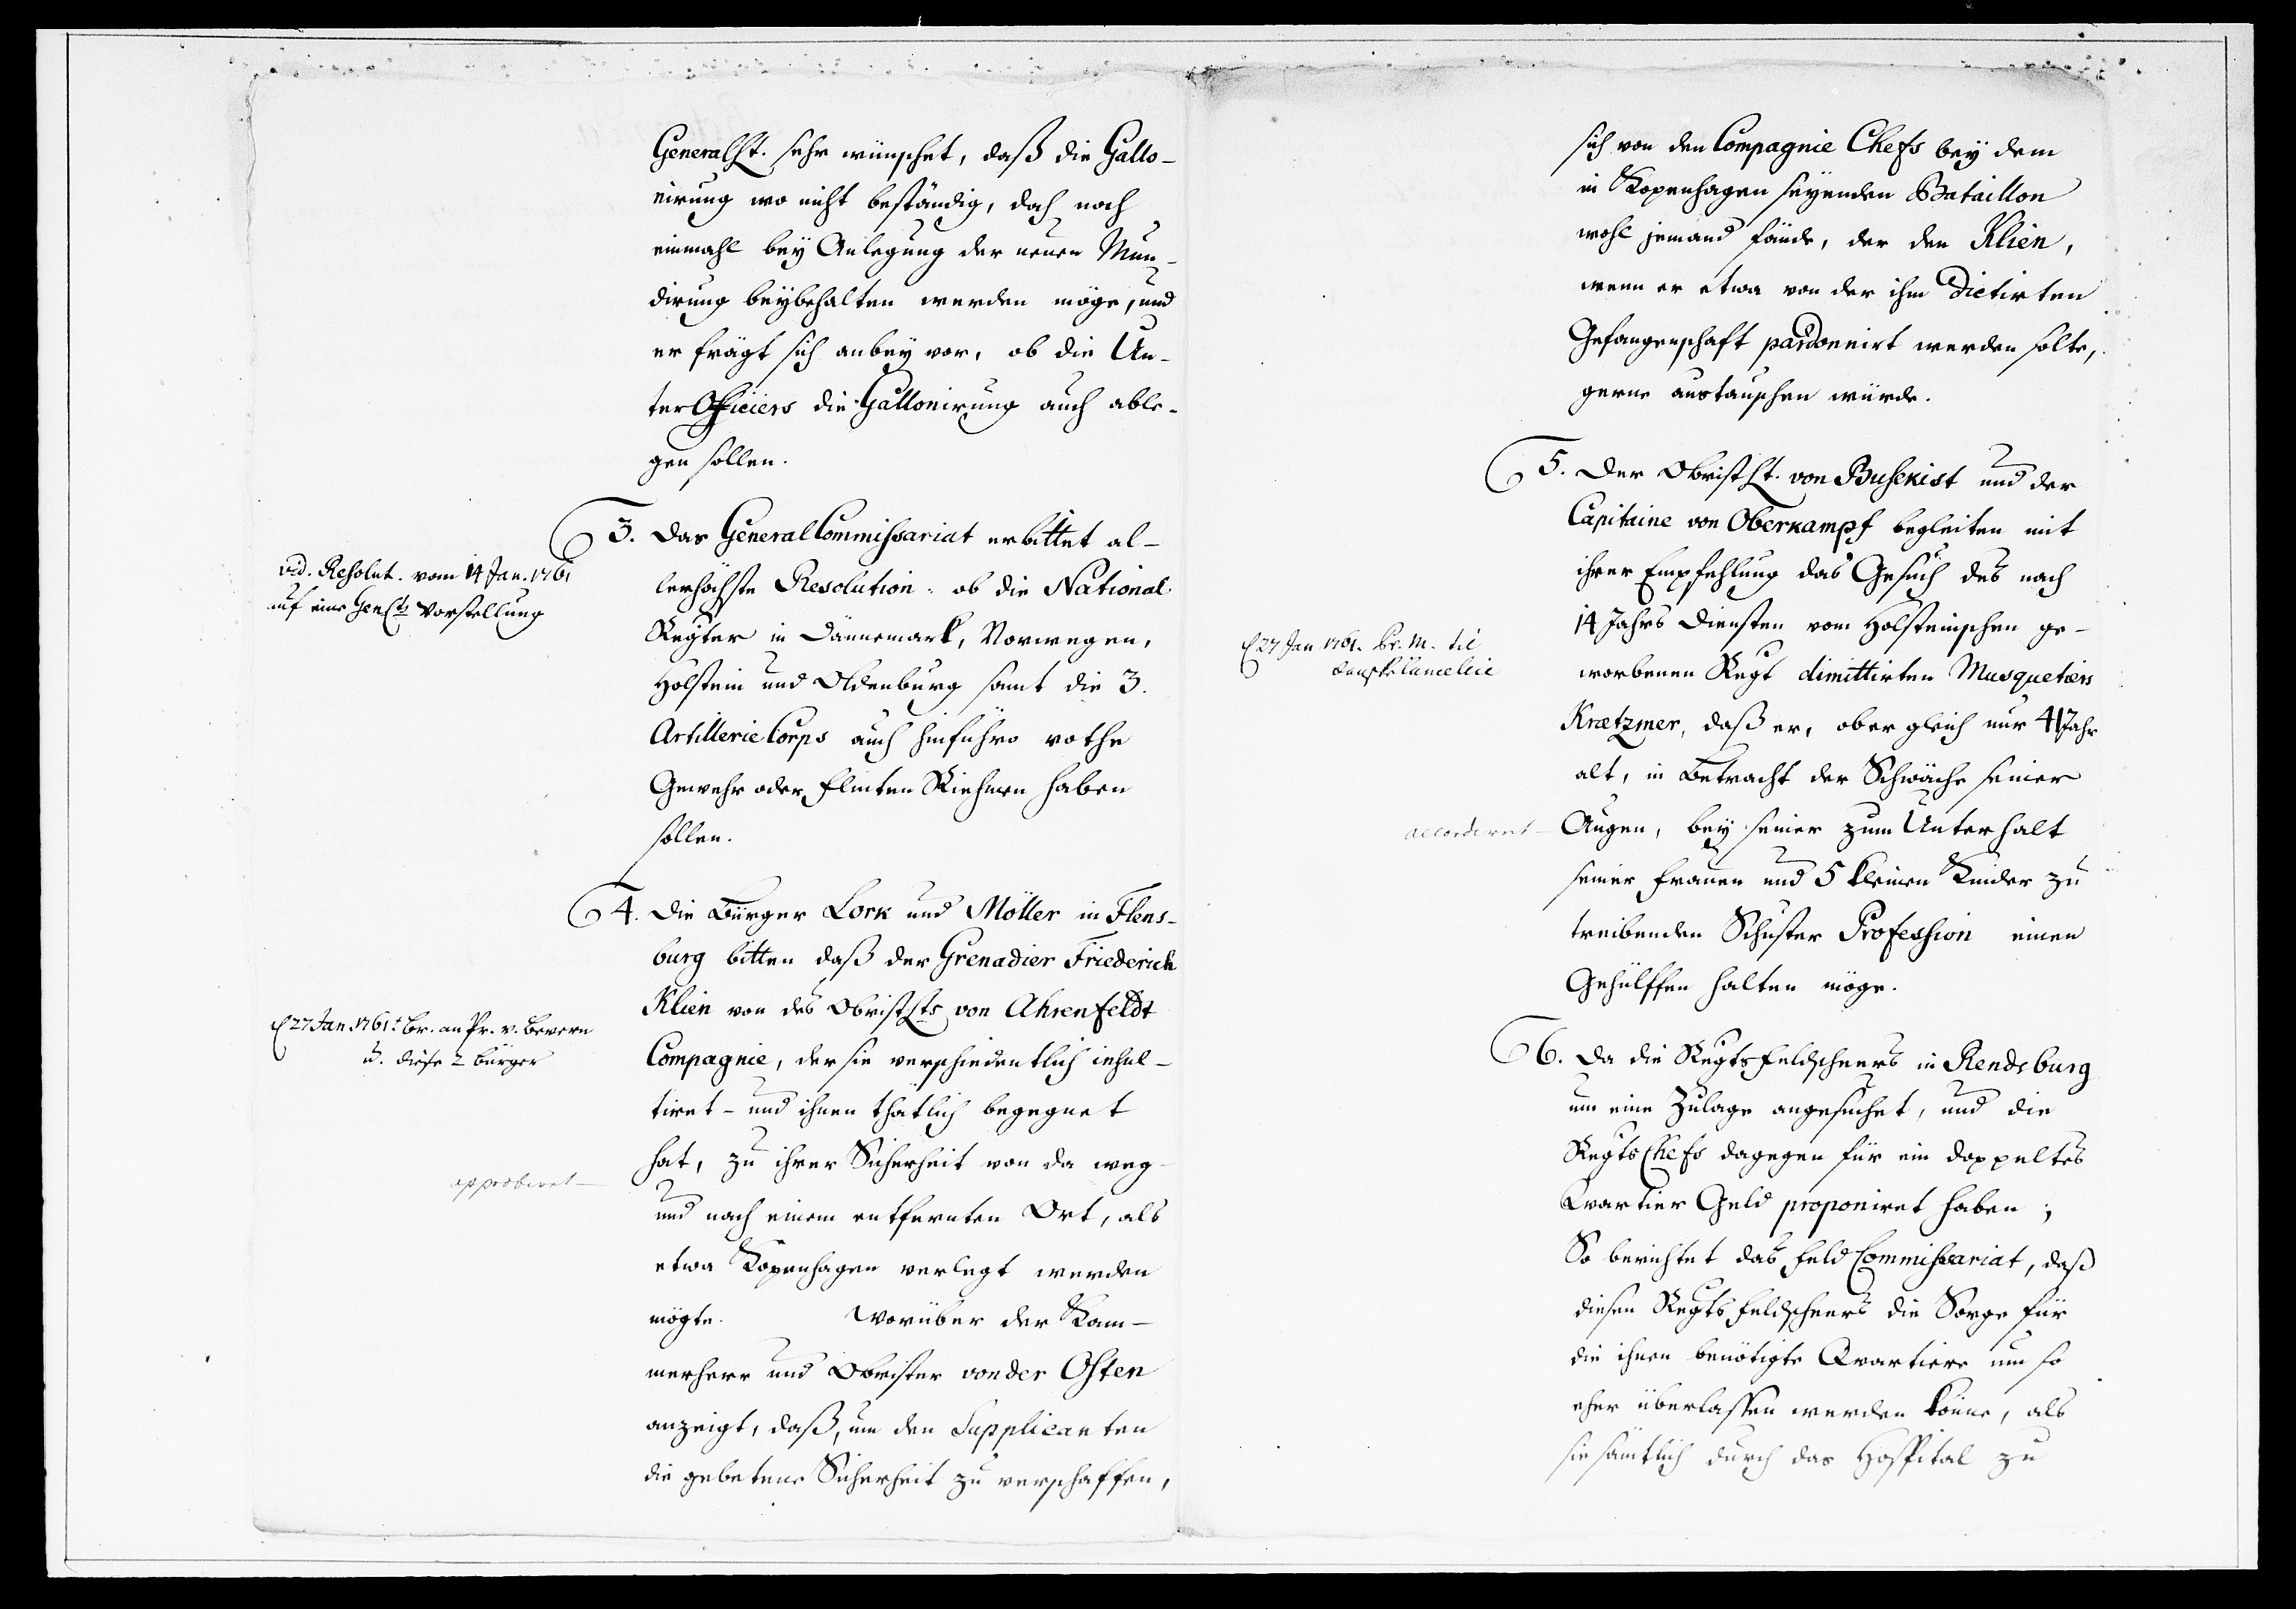 GeneralLt. sehr wünschet, daß die Gallo-
nirung wo nicht beständig, doch noch
einmahl bey Anlegung der neuen Mun-
dirung beybehalten werden möge, und
er frägt sich anbey vor, ob die Un-
terOfficiers die Gallonirung auch able-
gen sollen.
3. Das GeneralCommissariat erbittet al-
lerhöchste Resolution: ob die National
Regter in Dännemark, Norwegen,
Holstein und Oldenburg samt die 3.
ArtillerieCorps auch hinführo rothe
Gewehr oder Flinten Riehmen haben
sollen.
vid. Resolut. vom 14 Jan. 1761
auf eine GenLts Vorstellung
4. Die Bürger Lork und Möller in Flens-
burg bitten daß der Grenadier Friederich
Klien von des ObristLts von Ahrenfeldt
Compagnie, der sie verschiedentlich insul-
tiret- und ihnen thatlich begegnet
hat, zu ihrer Sicherheit von da weg-
und nach einem entfernten Ort, als
etwa Kopenhagen verlegt werden
mögte. Worüber der Kam-
merherr und Obrister von der Osten
anzeigt, daß, um den Supplicanten
die gebetene Sicherheit zu verschaffen,
E 27 Jan 1761. Br. an Pr. v. Bevern
u. diese 2 Bürger
approbiret-
sich von den Compagnie Chefs bey dem
in Kopenhagen seyenden Bataillon
wohl jemand fände, der den Klien,
wenn er etwa von der ihm dictirten
Gefangenschaft pardonnirt werden solte,
gerne austauschen würde.
5. Der ObristLt. von Busekist und der
Capitaine von Oberkampf begleiten mit
ihrer Empfehlung das Gesuch des nach
14 Jahrs Diensten vom Holsteinischen ge-
worbenen Regt dimittirten Musquetiers
Krætzmer, daß er, ober gleich nur 41 Jahr
alt, in Betracht der Schwäche seiner
Augen, bey seiner zum Unterhalt
seiner Frauen und 5 kleinen Kinder zu
treibenden Schuster Profession einen
Gehülffen halten möge.
E 27 Jan 1761. Br. M. til
danske Cancellie
accorderet-
6. Da die Regts Feldscheers in Rendsburg
um eine Zulage angesuchet, und die
Regts Chefs dagegen für ein doppeltes
Qvartier Geld proponiret haben;
So berichtet das Feld Commissariat, daß
diesen Regts Feldscheers die Sorge für
die ihnen benötigte Qvartiere um so
eher überlassen werden könne, als
sie sämtlich durch das Hospital zu